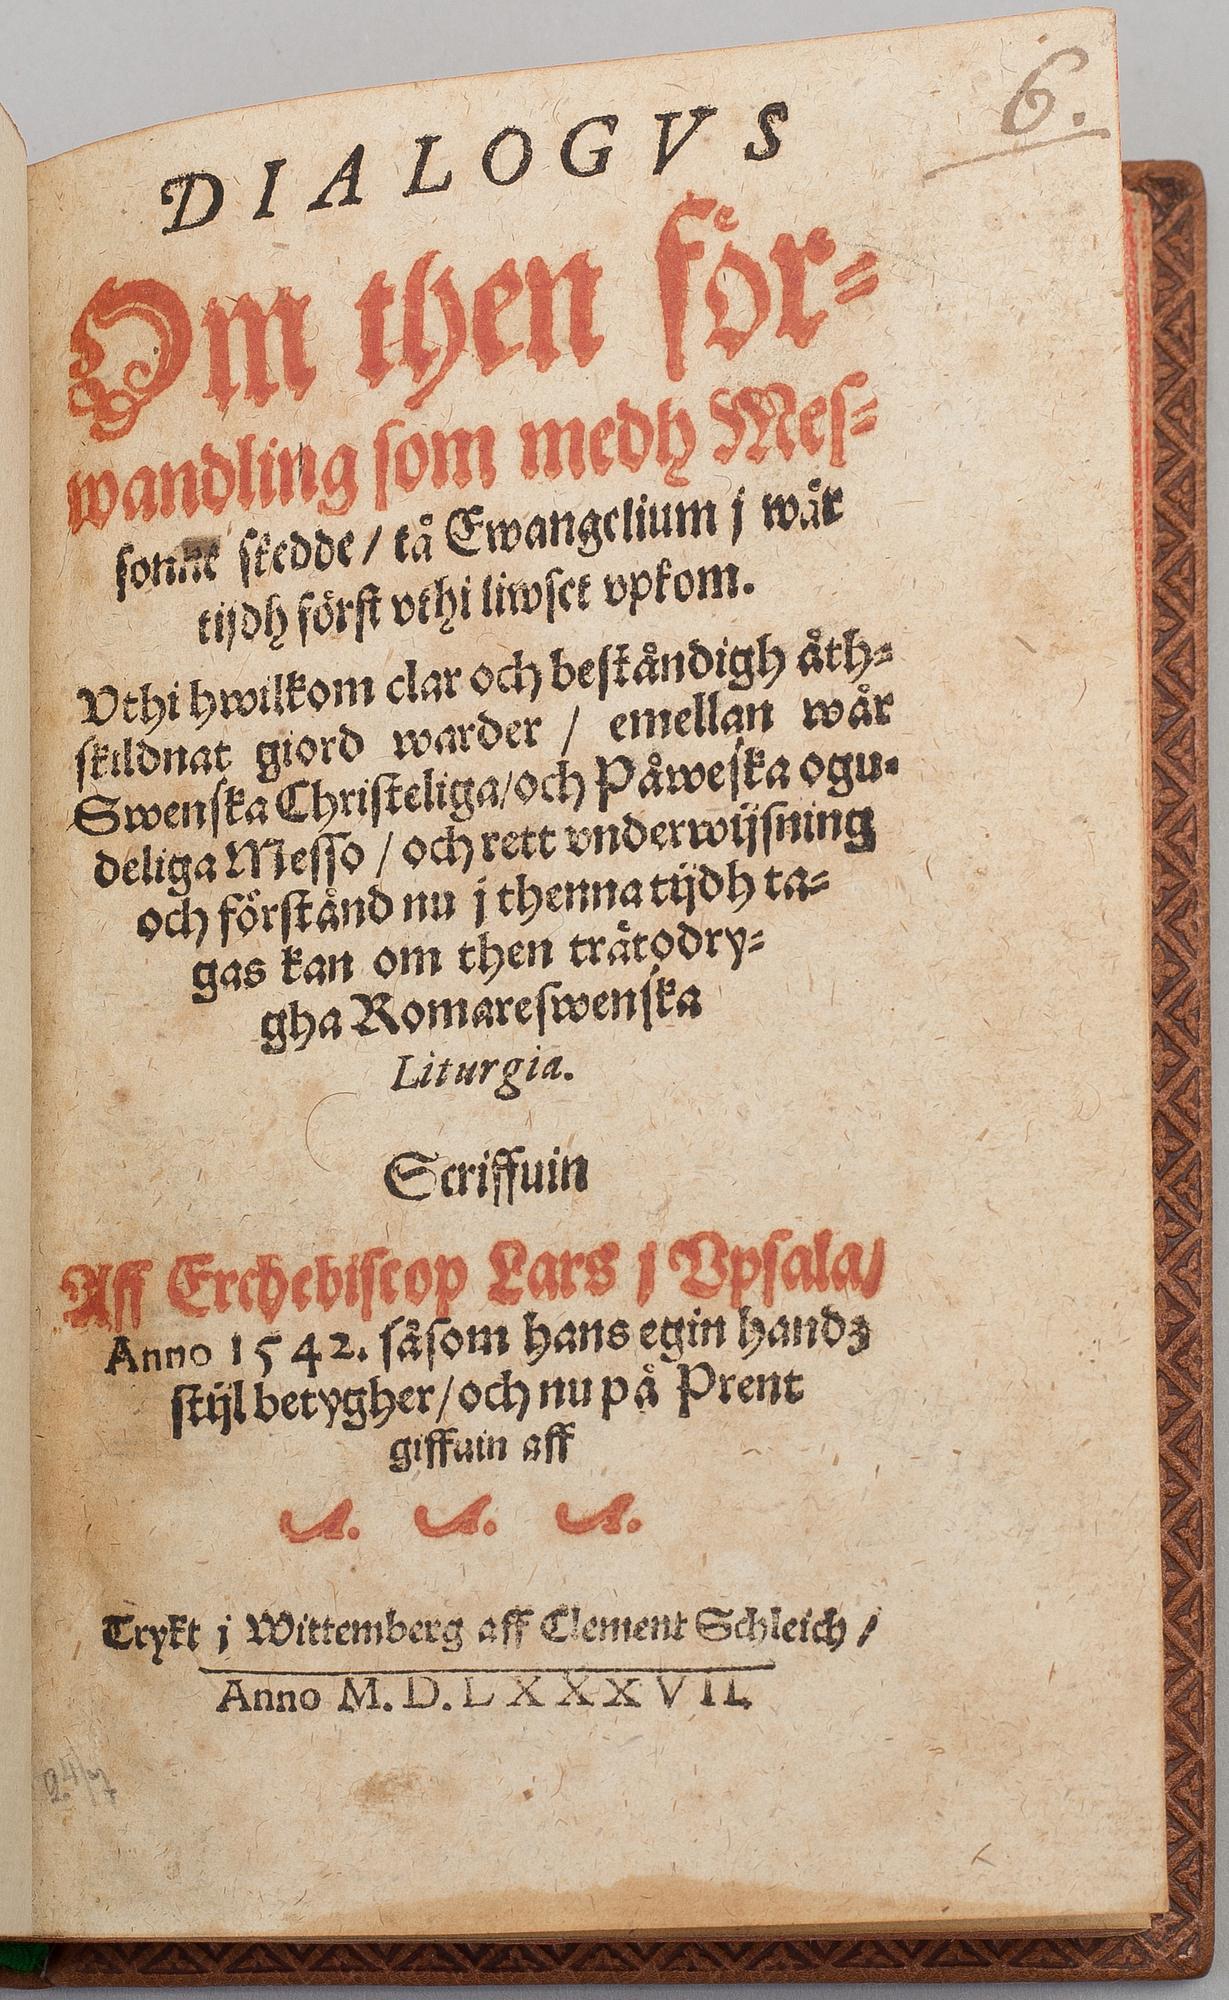 6.
DIALOGVS
Om then för=
wandling som medh Mes=
sonne skedde / tå Ewangelium j wår
tijdh först vthi liwset vpkom.
Vthi hwilkom clar och beståndigh åth=
skildnat giord warder / emellan wår
Swenska Christeliga / och Påweska ogu=
deliga Messo / och rett vnderwijsning
och förstånd nu j thenna tijdh ta=
gas kan om then trätodry=
gha Romareswenska
Liturgia.
Scriffuin
Aff Erchebiscop Lars j Vpsala /
Anno 1542. såsom hans egin handz
stijl betygher / och nu på Prent
giffuin aff
A. A. A.
Trykt j Wittemberg aff Clement Schleich /
Anno M. D. LXXXVII.